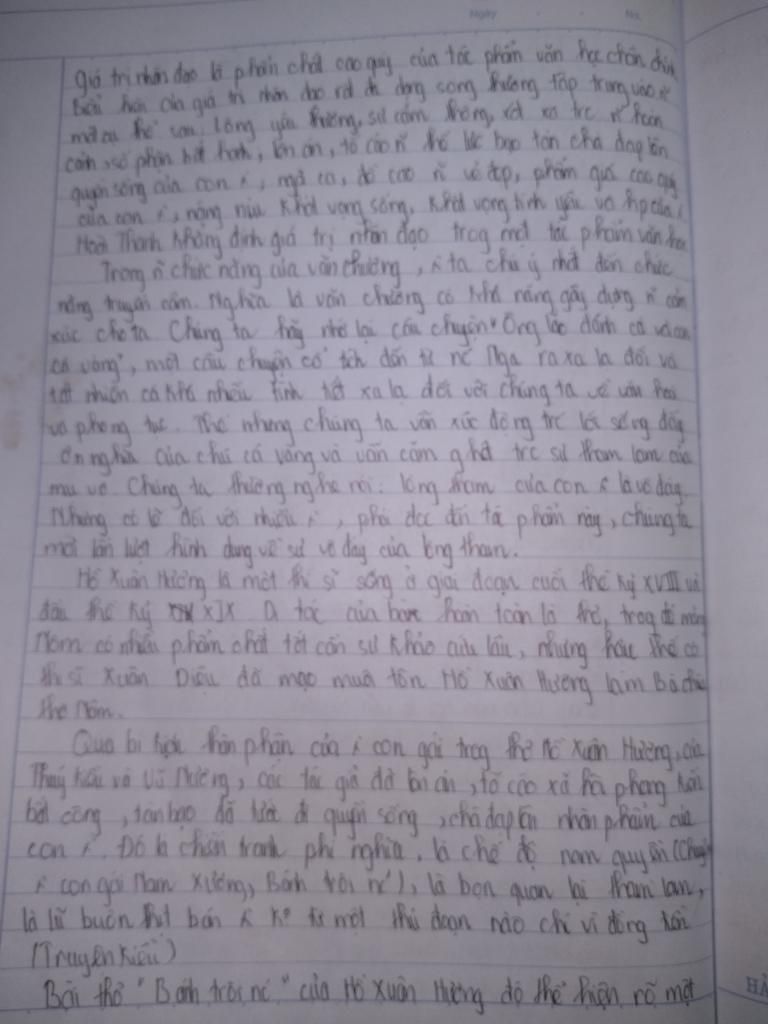 Ngày . . No.
Giá trị nhân đạo là phẩm chất cao quý của tác phẩm văn học chân chính
Biểu hiện của giá trị nhân đạo rất đa dạng song thường tập trung vào n~
mặt cụ thể sau: lòng yêu thương, sự cảm thông, xót xa trc n~ hoàn
cảnh, số phận bất hạnh, lên án, tố cáo n~ thế lực bạo tàn chà đạp lên
quyền sống của con ng, ngợi ca, đề cao n~ vẻ đẹp, phẩm giá cao quý
của con ng, nâng niu khát vọng sống, khát vọng tình yêu và hp của
Hoài Thanh khẳng định giá trị nhân đạo trog một tác phẩm văn học
Trong n~ chức năng của văn chương, ng ta chú ý nhất đến chức
năng truyền cảm. Nghĩa là văn chương có khả năng gây dựng n~ cảm
xúc cho ta. Chúng ta hãy nhớ lại câu chuyện "Ông lão đánh cá và con
cá vàng", một câu chuyện cổ tích đến từ nc Nga ra xa lạ đối và
tất nhiên có khá nhiều tình tiết xa lạ đối với chúng ta về văn hoá
và phong tục. Thế nhưng chúng ta vẫn xúc động trc lối sống đầy
ơn nghĩa của chú cá vàng và vẫn căm ghét trc sự tham lam của
mụ vợ. Chúng ta thường nghe nói: lòng tham của con ng là vô đáy.
Nhưng có lẽ đối với nhiều ng, phải đọc đến tá phẩm này, chúng ta
mới lần lượt hình dung về sự vô đáy của lòng tham.
Hồ Xuân Hương là một thi sĩ sống ở giai đoạn cuối thế kỷ XVIII và
đầu thế kỷ XIX. Di tác của bà hoàn toàn là thơ, trog đó mảng
Nôm có nhiều phẩm chất tốt cần sự khảo cứu lâu, nhưng hậu thế có
thi sĩ Xuân Diệu đã mạo muội tôn Hồ Xuân Hương làm Bà chúa
thơ Nôm.
Qua bi kịch thân phận của ng con gái trog thơ Hồ Xuân Hương, của
Thuý Kiều và Vũ Nương, các tác giả đã lên án, tố cáo xã hội phong kiến
bất công, tàn bạo đã tước đi quyền sống, chà đạp lên nhân phẩm của
con ng. Đó là chiến tranh phi nghĩa, là chế độ nam quyền (Chuyện
ng con gái Nam Xương, Bánh trôi nc), là bọn quan lại tham lam,
là lũ buôn thịt bán ng ko từ một thủ đoạn nào chỉ vì đồng tiền
(Truyện Kiều)
Bài thơ "Bánh trôi nc" của Hồ Xuân Hương đã thể hiện rõ một